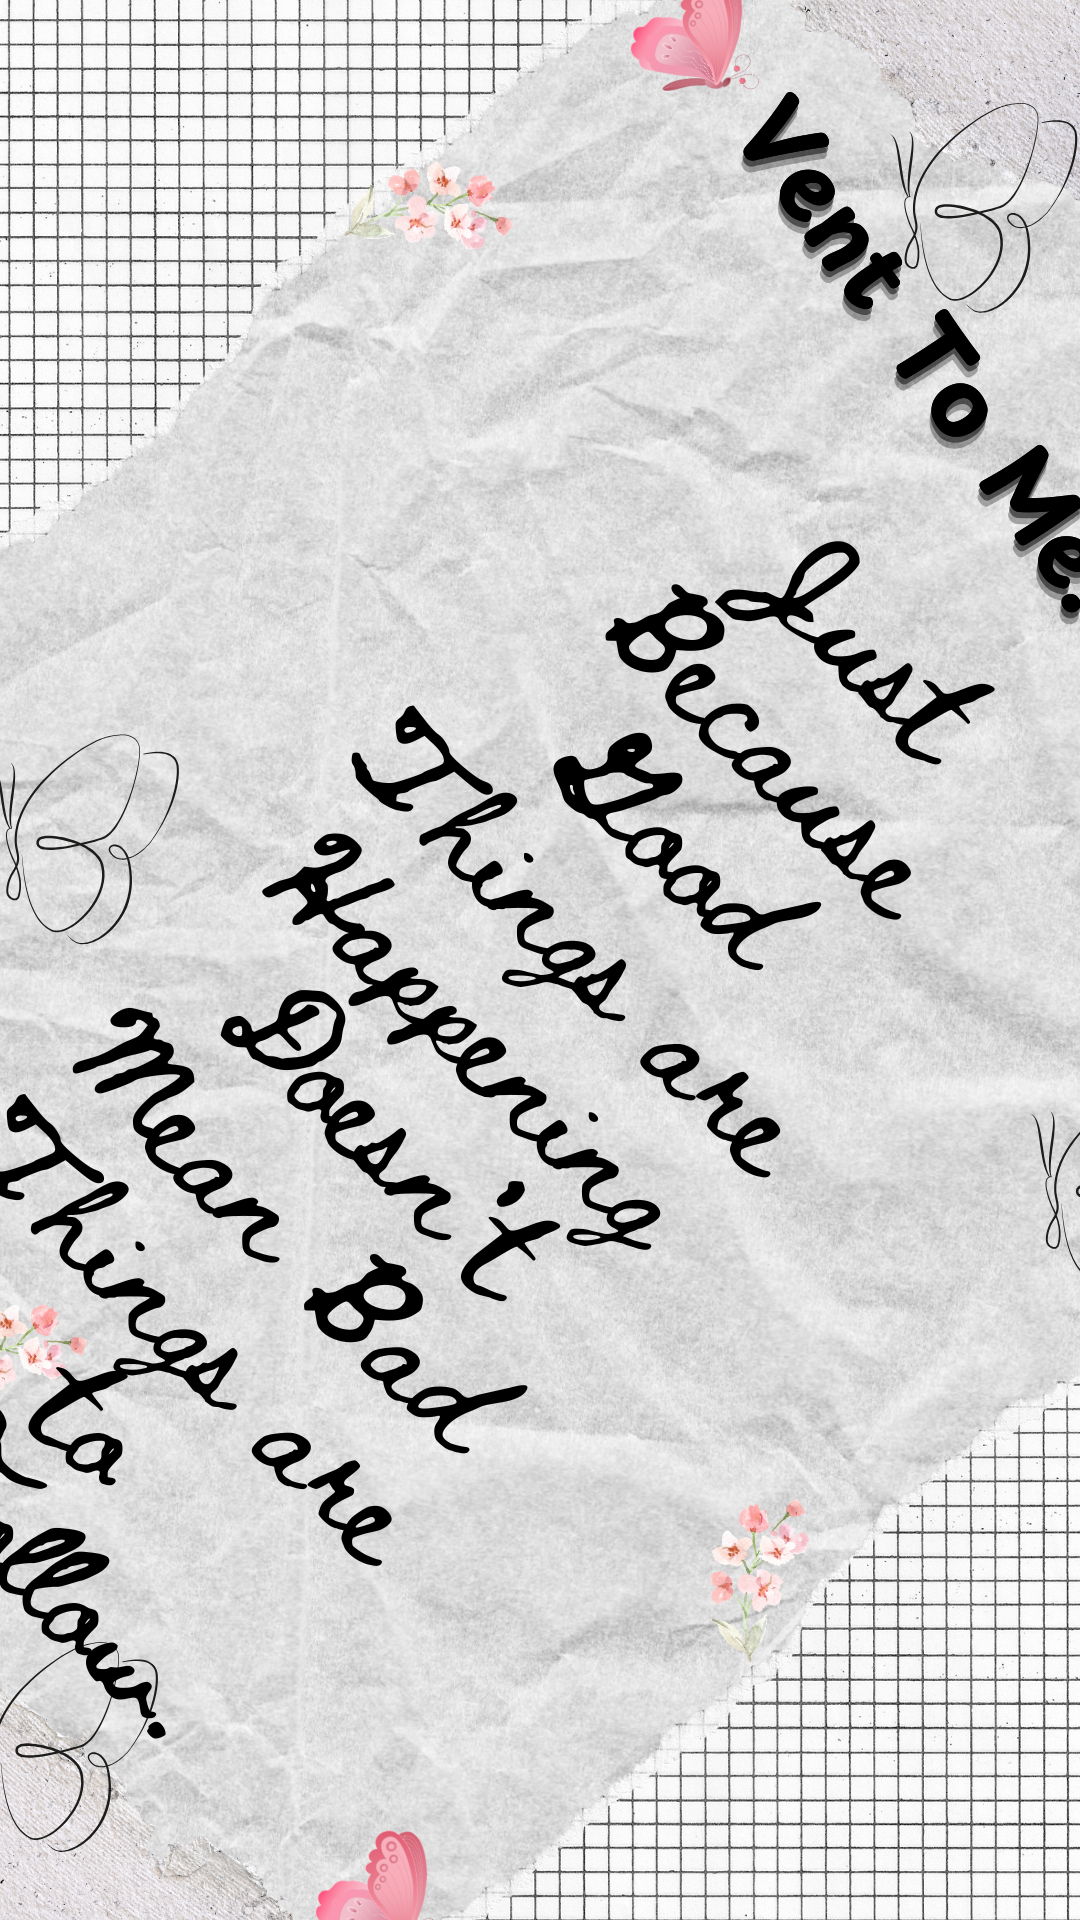 Vent To Me.
Just
Because
Good
Things are
Happening
Doesn't
Mean Bad
Things are
to
ollow.